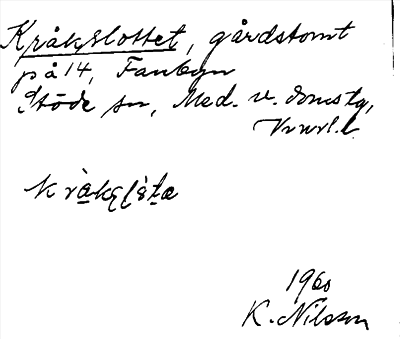 Kråkslottet, gårdstomt
på 14, Fanbyn
Stöde sn, Med. v. domstg,
Vnrl.l
1960
K. Nilsson